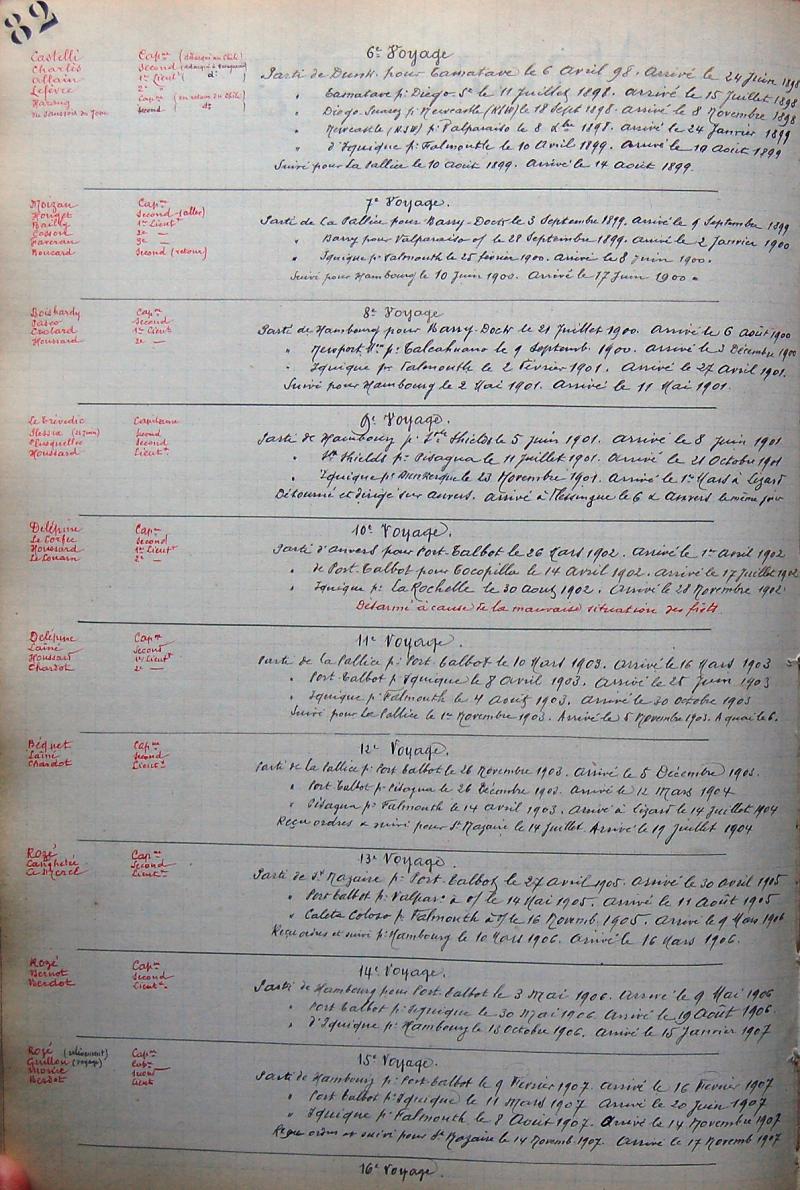 82
6e Voyage
Castelli Capne (débarqué au Chili)
Charles Second
Allain 1er Lieutt
Lefèvre 2e "
Harang Capne (en retour du Chili)
du Saussois du Jonc second dt
Parti de Dunk. pour Tamatave le 6 Avril 98. Arrivé le 24 Juin 1898
" Tamatave pr Diégo-Sz le 11 Juillet 1898. arrivé le 15 Juillet 1898
" Diego Suarez pr Newcastle (NSW) le 18 Sept 1898. arrivé le 8 Novembre 1898
" Newcastle (NSW) pr Valparaiso le 8 Xbre 1898. arrivé le 24 Janvier 1899
" d'Iquique pr Falmouth le 10 Avril 1899. Arrivé le 10 Août 1899
Suivi pour la Pallice le 10 Août 1899. Arrivé le 14 Août 1899.
7e Voyage
Moizan Capne
Houget Second (aller)
Bailly 1er Lieutt
Cosson 2e —
Faveran 3e —
Boucard Second (retour)
Parti de La Pallice pour Barry-Dock le 3 Septembre 1899. Arrivé le 9 Septembre 1899
" Barry pour Valparaiso o/ le 28 Septembre 1899. Arrivé le 2 Janvier 1900
" Iquique pr Falmouth le 25 février 1900. Arrivé le 8 Juin 1900.
Suivi pour Hambourg le 10 Juin 1900. Arrivé le 17 Juin 1900
8e Voyage
Boishardy Capne
Pasco Second
Crolard 1er Lieutt
Houssard 2e —
Parti de Hambourg pour Barry-Dock le 21 Juillet 1900. Arrivé le 6 Août 1900
" Newport Mon pr Talcahuano le 9 Septemb. 1900. Arrivé le 3 Décembre 1900
" Iquique pr Falmouth le 2 Février 1901. Arrivé le 27 Avril 1901.
Suivi pour Hambourg le 2 Mai 1901. Arrivé le 11 Mai 1901.
9e Voyage
Le Trévédic Capitaine
Second
Plusquellec Second
Houssard Lieutt
Parti de Hambourg pr Sth Shields le 5 Juin 1901. Arrivé le 8 Juin 1901
" Sth Shields pr Pisagua le 11 Juillet 1901. Arrivé le 21 Octobre 1901
" Iquique pr Dunkerque le 23 Novembre 1901. Arrivé le 1er Mars à Lizard
Détourné et dirigé sur Anvers. Arrivé à Flessingue le 6 & Anvers le même jour
10e Voyage.
Delépine Capne
Le Corfec Second
Houssard 1er Lieutt
Le Louarn 2e —
Parti d'Anvers pour Port-Talbot le 26 Mars 1902. Arrivé le 1er Avril 1902
" de Port-Talbot pour Tocopilla le 14 Avril 1902. Arrivé le 17 Juillet 1902
" Iquique pr La Rochelle le 30 Août 1902. Arrivé le 28 Novembre 1902
Désarmé à cause de la mauvaise situation des frêts
11e Voyage.
Delépine Capne
Lainé Second
Houssard 1er Lieutt
Chardot 2e —
Parti de la Pallice pr Port-Talbot le 10 Mars 1903. Arrivé le 16 Mars 1903
" Port Talbot pr Iquique le 8 Avril 1903. Arrivé le 25 Juin 1903
" Iquique pr Falmouth le 4 Août 1903. Arrivé le 30 Octobre 1903
Suivi pour La Pallice le 1er Novembre 1903. Arrivé le 5 Novembre 1903. A quai le 6.
12e Voyage.
Béquet Capne
Lainé Second
Chardot Lieutt
Parti de la Pallice pr Port Talbot le 26 Novembre 1903. Arrivé le 5 Décembre 1903.
" Port Talbot pr Pisagua le 26 Décembre 1903. Arrivé le 12 Mars 1904
" Pisagua pr Falmouth le 14 Avril 1903. Arrivé à Lizard le 14 Juillet 1904
Reçu ordres & suivi pour St Nazaire le 14 Juillet. Arrivé le 19 Juillet 1904
13e Voyage.
Rozé Capne
Second
Lieutt
Parti de St Nazaire pr Port-Talbot le 27 Avril 1905. Arrivé le 30 Avril 1905
" Port Talbot pr Valparo à o/ le 14 Mai 1905. Arrivé le 11 Août 1905
" Caleta Coloso pr Falmouth à o/ le 16 Novemb. 1905. Arrivé le 9 Mars 1906
Reçu ordres et suivi pr Hambourg le 10 Mars 1906. Arrivé le 16 Mars 1906.
14e Voyage.
Rozé Capne
Bernot Second
Berdot Lieutt
Parti de Hambourg pour Port-Talbot le 3 Mai 1906. Arrivé le 9 Mai 1906
" Port Talbot pr Iquique le 30 Mai 1906 Arrivé le 19 Août 1906.
" d'Iquique pr Hambourg le 13 Octobre 1906. Arrivé le 15 Janvier 1907
15e Voyage.
Rozé Capne
Guillou (voyage) Capne
Second
Berdot Lieut
Parti de Hambourg pr Port-Talbot le 9 Février 1907. Arrivé le 16 Février 1907
" Port Talbot pr Iquique le 11 Mars 1907 Arrivé le 20 Juin 1907
" Iquique pr Falmouth le 8 Août 1907. Arrivé le 14 Novembre 1907
Reçu ordres et suivi pour St Nazaire le 14 Novemb. 1907. Arrivé le 17 Novemb 1907
16e Voyage.